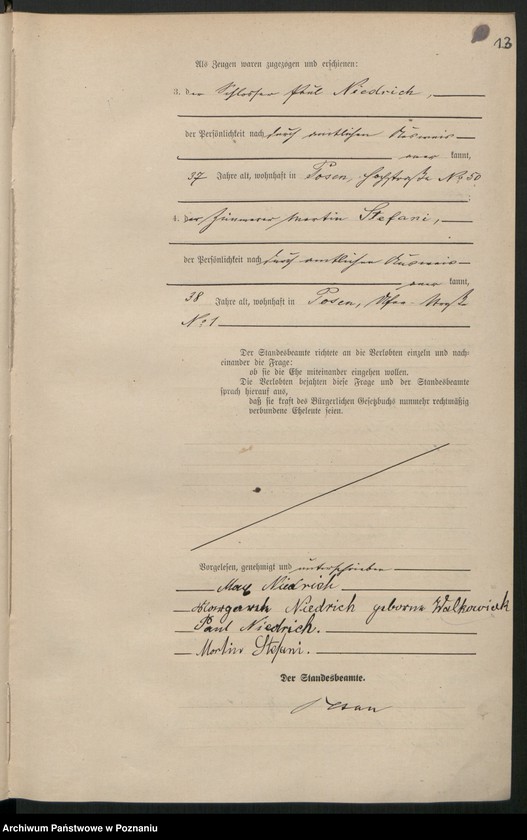 13
Als Zeugen waren zugezogen und erschienen:
3. der Schlosser Paul Niedrich,
der Persönlichkeit nach durch amtlichen Ausweis
kannt,
37 Jahre alt, wohnhaft in Posen, No 50
4. der Zimmerer Martin Stefani,
der Persönlichkeit nach durch amtlichen Ausweis
kannt,
38 Jahre alt, wohnhaft in Posen,
No 1
Der Standesbeamte richtete an die Verlobten einzeln und nach-
einander die Frage:
ob sie die Ehe miteinander eingehen wollen.
Die Verlobten bejahten diese Frage und der Standesbeamte
sprach hierauf aus,
daß sie kraft des Bürgerlichen Gesetzbuchs nunmehr rechtmäßig
verbundene Eheleute seien.
Vorgelesen, genehmigt und unterschrieben
Max Niedrich
Niedrich geborne Walkowiak
Paul Niedrich.
Martin Stefani.
Der Standesbeamte.
Archiwum Państwowe w Poznaniu